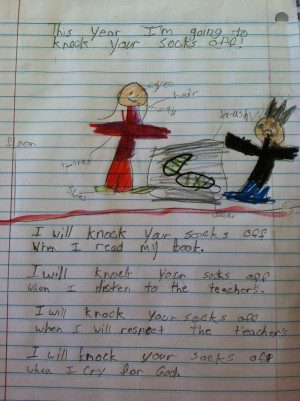 This Year I'm going to
knock your socks off!
eyes
hair
trash
Shoes
I will knock your socks off
When I read my book.
I will knock your socks off
when I listen to the teachers.
I will knock your socks off
when I will respect the teachers
I will knock your socks off
when I cry for God.